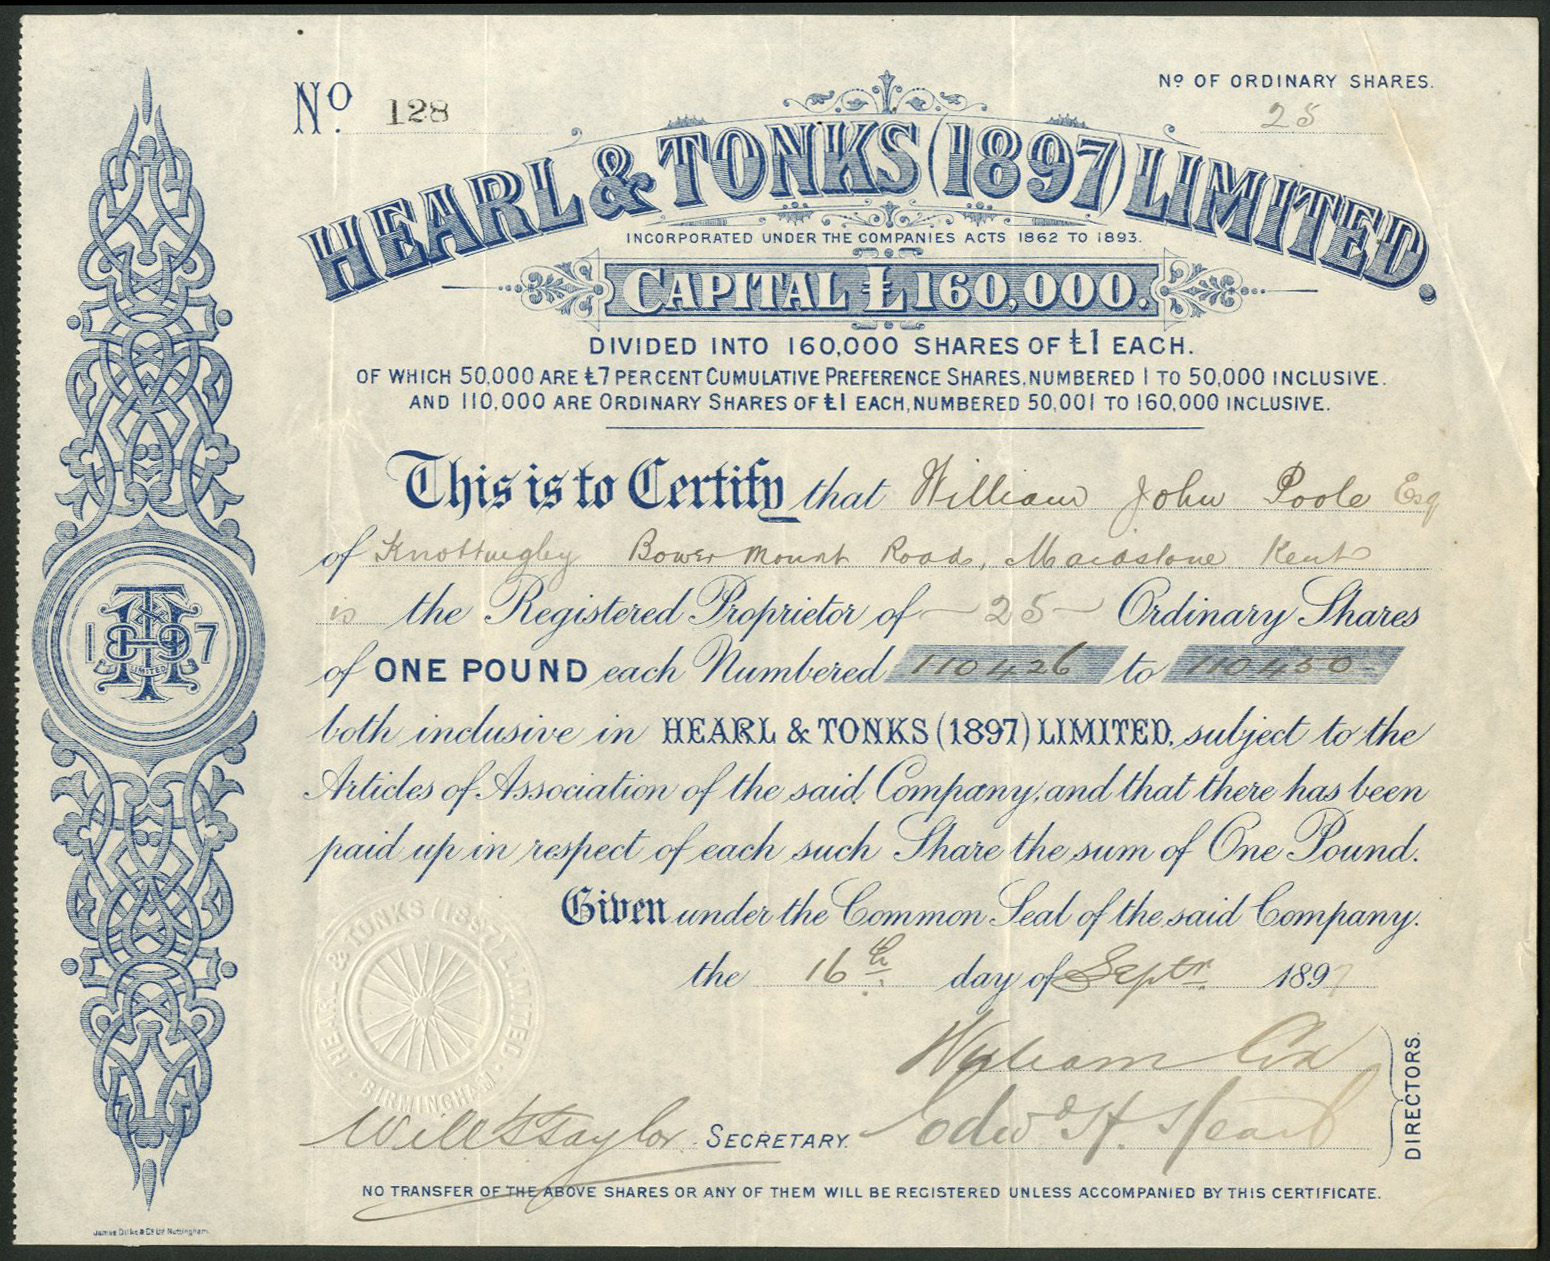 No. 128
No OF ORDINARY SHARES.
25
HEARL & TONKS (1897) LIMITED.
INCORPORATED UNDER THE COMPANIES ACTS 1862 TO 1893.
CAPITAL £160,000.
DIVIDED INTO 160,000 SHARES OF £1 EACH.
OF WHICH 50,000 ARE £7 PERCENT CUMULATIVE PREFERENCE SHARES, NUMBERED 1 TO 50,000 INCLUSIVE.
AND 110,000 ARE ORDINARY SHARES OF £1 EACH, NUMBERED 50,001 TO 160,000 INCLUSIVE.
This is to Certify that William John Poole Esq
of Knottingley Bower Mount Road, Maidstone Kent
is the Registered Proprietor of — 25 — Ordinary Shares
of ONE POUND each Numbered 110426 to 110450
both inclusive in HEARL & TONKS (1897) LIMITED, subject to the
Articles of Association of the said Company, and that there has been
paid up in respect of each such Share the sum of One Pound.
Given under the Common Seal of the said Company.
the 16th day of Septr 1897
HEARL & TONKS (1897) LIMITED
BIRMINGHAM
William Cox
Edwd H. Hearl
DIRECTORS.
Will S Taylor SECRETARY.
NO TRANSFER OF THE ABOVE SHARES OR ANY OF THEM WILL BE REGISTERED UNLESS ACCOMPANIED BY THIS CERTIFICATE.
HT
1897
LIMITED
James Dilks & Co Ld Nottingham.